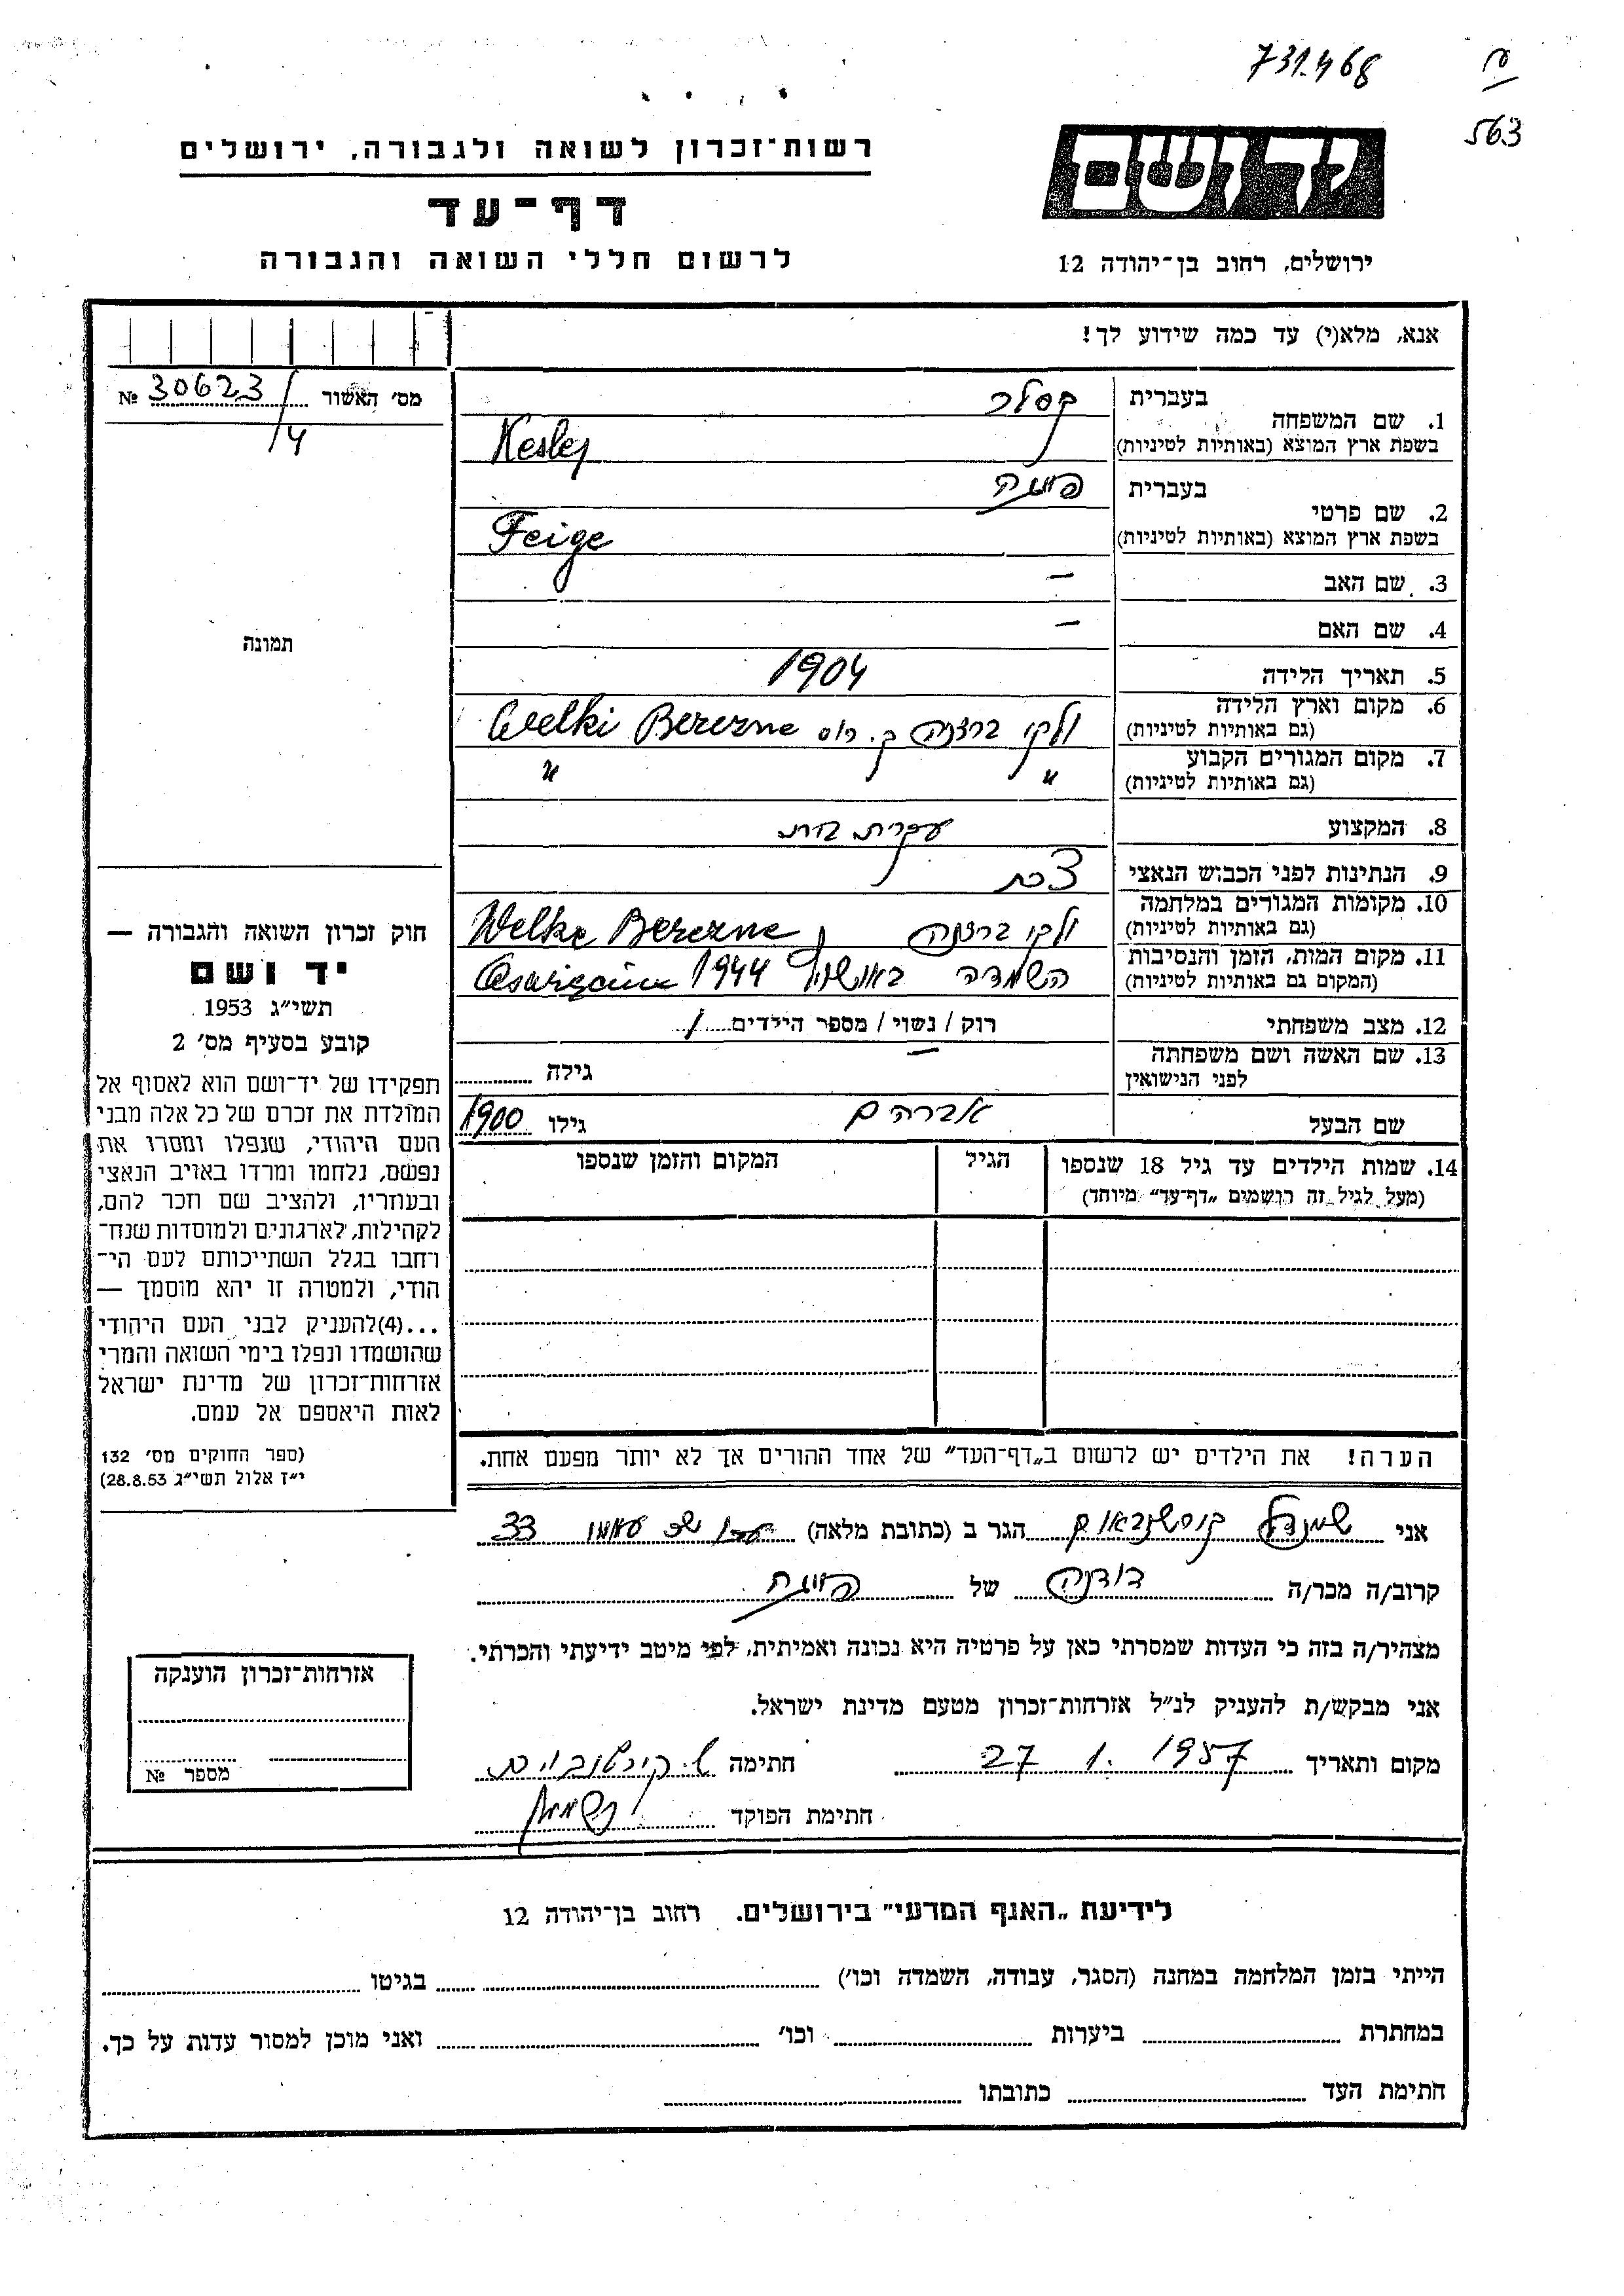 731.468
563
רשות־זכרון לשואה ולגבורה, ירושלים
דף־עד
לרשום חללי השואה והגבורה
יד ושם
ירושלים, רחוב בן־יהודה 12
אנא, מלא(י) עד כמה שידוע לך!
מס׳ האשור 30623/4 №
תמונה
1. שם המשפחה
בעברית קסלר
בשפת ארץ המוצא (באותיות לטיניות) Kesler
2. שם פרטי
בעברית פייגה
בשפת ארץ המוצא (באותיות לטיניות) Feige
3. שם האב —
4. שם האם —
5. תאריך הלידה 1904
6. מקום וארץ הלידה ולקי ברזנה Welki Berezne
(גם באותיות לטיניות)
7. מקום המגורים הקבוע " "
(גם באותיות לטיניות)
8. המקצוע עקרת בית
9. הנתינות לפני הכבוש הנאצי צ׳כית
10. מקומות המגורים במלחמה ולקי ברזנה Welke Berezne
(גם באותיות לטיניות)
11. מקום המות, הזמן והנסיבות השמדה 1944
(המקום גם באותיות לטיניות)
12. מצב משפחתי רוק / נשוי / מספר הילדים 1
13. שם האשה ושם משפחתה — גילה
לפני הנישואין
שם הבעל אברהם גילו 1900
14. שמות הילדים עד גיל 18 שנספו
(מעל לגיל זה רושמים „דף־עד״ מיוחד)
הגיל
המקום והזמן שנספו
הערה! את הילדים יש לרשום ב„דף־העד״ של אחד ההורים אך לא יותר מפעם אחת.
חוק זכרון השואה והגבורה —
יד ושם
תשי״ג 1953
קובע בסעיף מס׳ 2
תפקידו של יד־ושם הוא לאסוף אל
המולדת את זכרם של כל אלה מבני
העם היהודי, שנפלו ומסרו את
נפשם, נלחמו ומרדו באויב הנאצי
ובעוזריו, ולהציב שם וזכר להם,
לקהילות, לארגונים ולמוסדות שנח־
רחבו בגלל השתייכותם לעם הי־
הודי, ולמטרה זו יהא מוסמך —
...(4)להעניק לבני העם היהודי
שהושמדו ונפלו בימי השואה והמרי
אזרחות־זכרון של מדינת ישראל
לאות היאספם אל עמם.
(ספר החוקים מס׳ 132
י״ז אלול תשי״ג 28.8.53)
אני הגר ב (כתובת מלאה) 33
קרוב/ה מכר/ה דודנה של פייגה
מצהיר/ה בזה כי העדות שמסרתי כאן על פרטיה היא נכונה ואמיתית, לפי מיטב ידיעתי והכרתי.
אני מבקש/ת להעניק לנ״ל אזרחות־זכרון מטעם מדינת ישראל.
מקום ותאריך 27 1. 1957 חתימה
חתימת הפוקד
אזרחות־זכרון הוענקה
מספר №
לידיעת „האגף המדעי״ בירושלים. רחוב בן־יהודה 12
הייתי בזמן המלחמה במחנה (הסגר, עבודה, השמדה וכו׳) בגיטו
במחתרת ביערות וכו׳ ואני מוכן למסור עדות על כך.
חתימת העד כתובתו